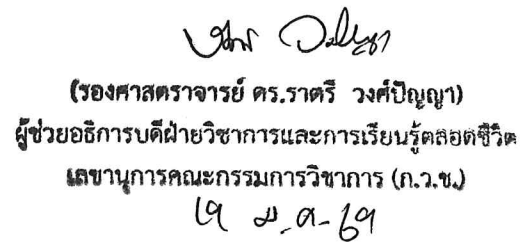 (รองศาสตราจารย์ ดร.ราตรี วงศ์ปัญญา)
ผู้ช่วยอธิการบดีฝ่ายวิชาการและการเรียนรู้ตลอดชีวิต
เลขานุการคณะกรรมการวิชาการ (ก.ว.ช.)